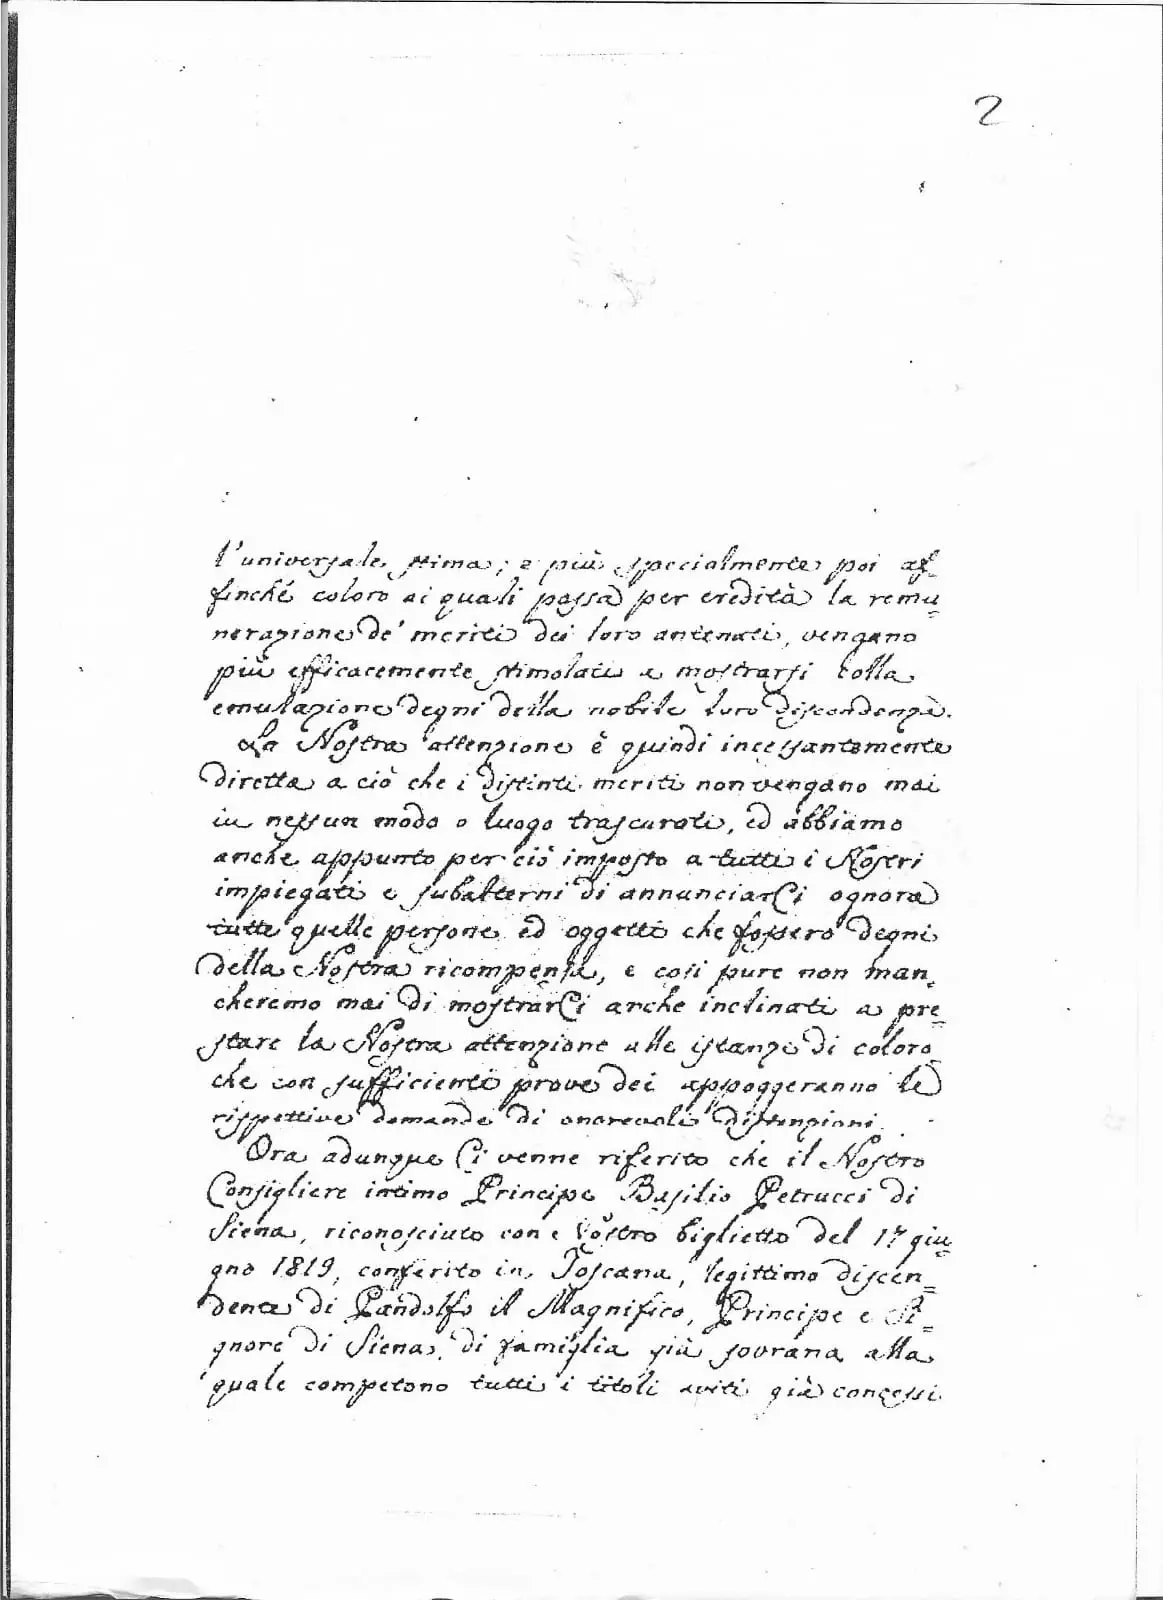 2
l'universale stima; e più specialmente poi af=
finché coloro ai quali passa per eredità la remu=
nerazione de' meriti dei loro antenati, vengano
più efficacemente stimolati a mostrarsi colla
emulazione degni della nobile loro discendenza.
La Nostra attenzione è quindi incessantemente
diretta a ciò che i distinti meriti non vengano mai
in nessun modo o luogo trascurati, ed abbiamo
anche appunto per ciò imposto a tutti i Nostri
impiegati e subalterni di annunciarCi ognora
tutte quelle persone ed oggetti che fossero degni
della Nostra ricompensa, e così pure non man=
cheremo mai di mostrarCi anche inclinati a pre=
stare la Nostra attenzione alle istanze di coloro
che con sufficienti prove dei appoggeranno le
rispettive domande di onorevoli distinzioni.
Ora adunque Ci venne riferito che il Nostro
Consigliere intimo Principe Basilio Petrucci di
Siena, riconosciuto con Nostro biglietto del 17 giu=
gno 1819, conferito in Toscana, legittimo discen=
dente di Pandolfo il Magnifico, Principe e Si=
gnore di Siena, di famiglia già sovrana alla
quale competono tutti i titoli aviti già concessi